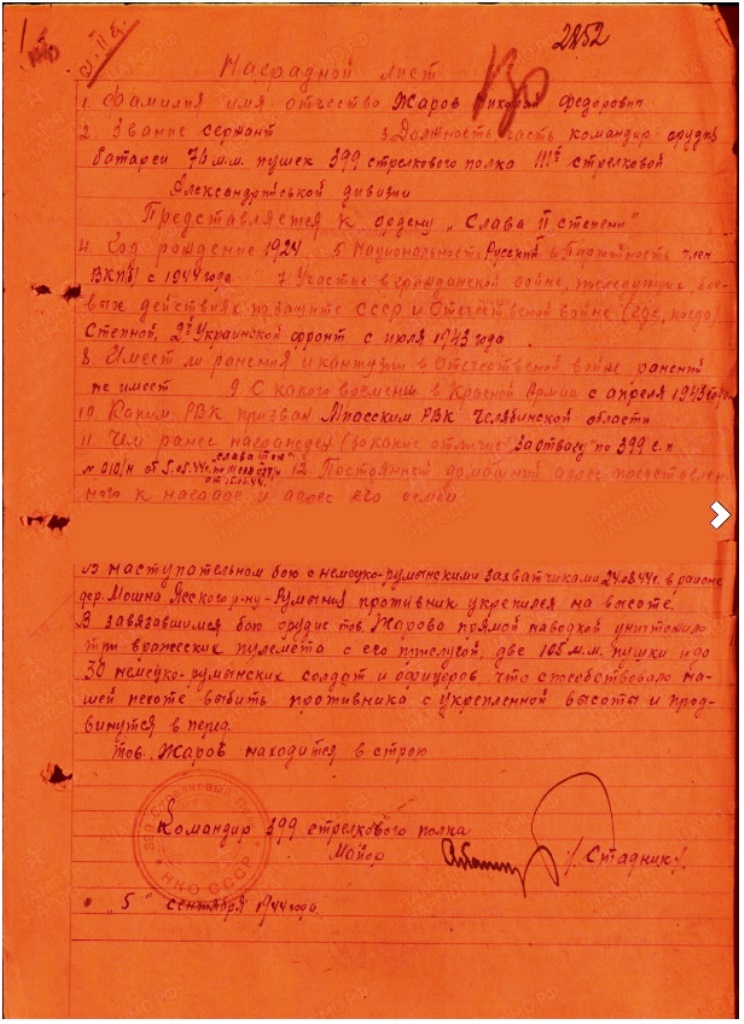 2252
Наградной лист
1. Фамилия имя отчество Жаров Николай Федорович
2. Звание сержант 3. Должность, часть командир орудия
батареи 76 м.м. пушек 399 стрелкового полка 111й стрелковой
Александрийськой дивизии
Представляется к ордену „Слава II степени"
4. Год рождение 1924 5 Национальность Русский 6 Партийность член
ВКП(б) с 1944 года 7 Участие в гражданской войне, последующих бое-
вых действиях по защите СССР и Отечественой войне (где, когда)
Степной, 2й Украинской фронт с июля 1943 года
8. Имеет ли ранения и кантузии в Отечественой войне ранений
не имеет 9 С какого времени в Красной Армии с апреля 1943 года
10 Каким РВК призван Миасским РВК Челябинской области
11 Чем ранее награжден (за какие отличия) „За отвагу" по 399 с.п
№ 010/н от 5.05.44г. „Слава III ст" 12. Постоянный домашний адрес представлен-
ного к награде и адрес его семьи
В наступательном бою с немецко-румынскими захватчиками 24.08.44г. в районе
дер. Мошна Ясского р-ну - Румыния противник укрепился на высоте.
В завязавшимся бою орудие тов. Жарова прямой наводкой уничтожило
три вражеских пулемета с его прислугой, две 105 м.м. пушки и до
30 немецко-румынских солдат и офицеров, что способствовало на-
шей пехоте выбить противника с укрепленной высоты и прод-
винутся в перед.
тов. Жаров находится в строю
Командир 399 стрелкового полка
Майор /Стадник/
„5" сентября 1944 года.
399 Стрелковый Полк
НКО СССР